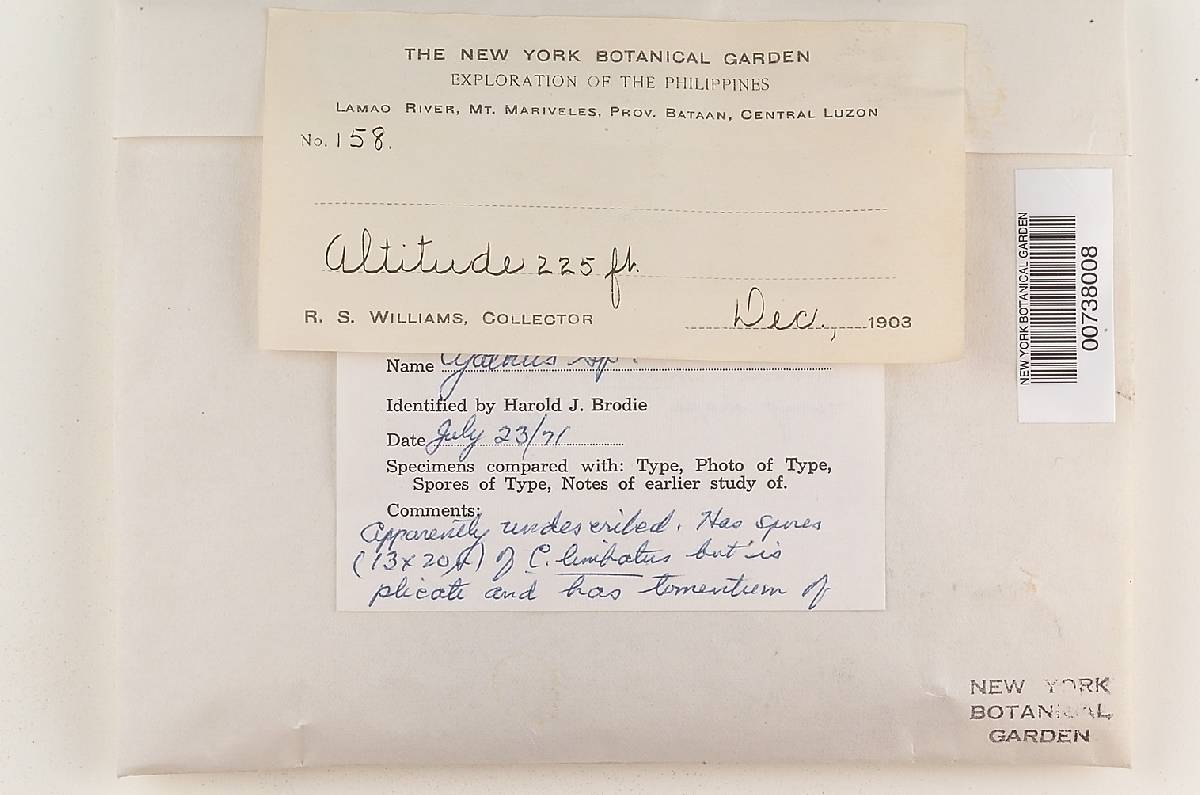 THE NEW YORK BOTANICAL GARDEN
EXPLORATION OF THE PHILIPPINES
LAMAO RIVER, MT. MARIVELES, PROV. BATAAN, CENTRAL LUZON
No. 158.
Altitude 225 ft.
R. S. WILLIAMS, COLLECTOR Dec., 1903
Name Cyathus sp.
Identified by Harold J. Brodie
Date July 23/71
Specimens compared with: Type, Photo of Type,
Spores of Type, Notes of earlier study of.
Comments:
Apparently undescribed. Has spores
(13 x 20 μ) of C. limbatus but is
plicate and has tomentum of
NEW YORK BOTANICAL GARDEN
00738008
NEW YORK
BOTANICAL
GARDEN